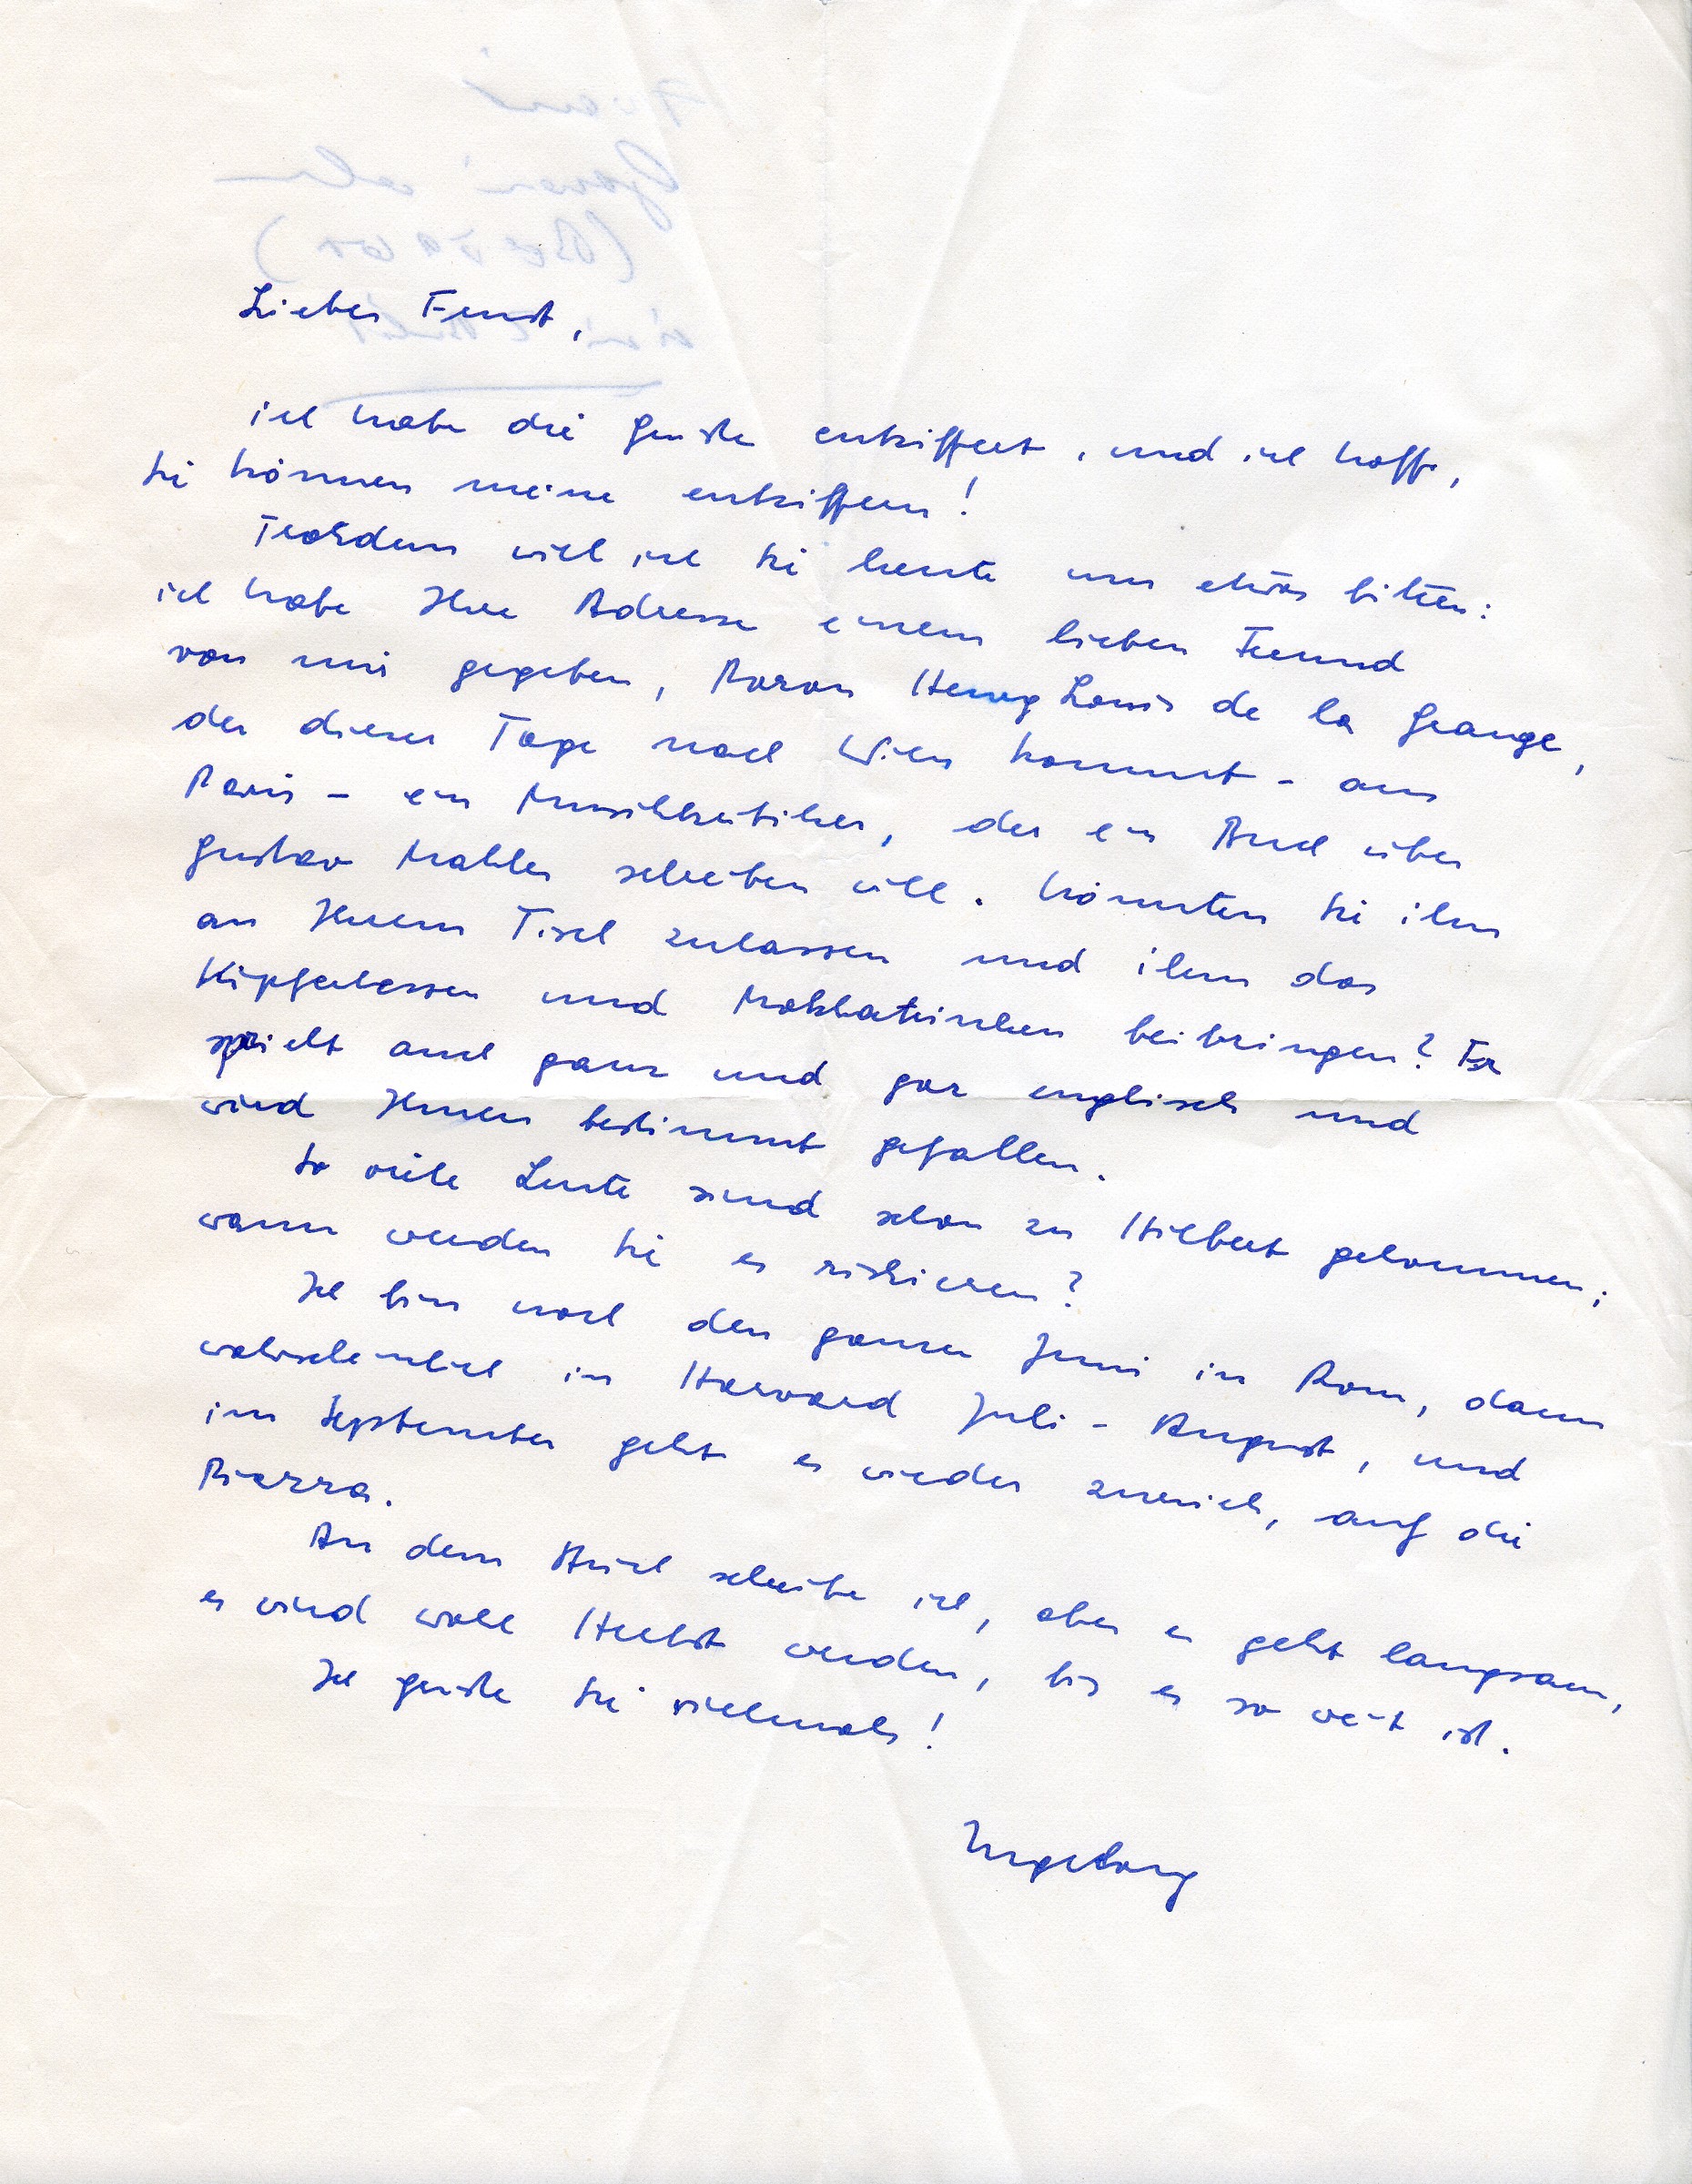 Lieber Ernst,
ich habe die Grüsse entziffert, und ich hoffe,
Sie können meine entziffern!
Trotzdem will ich Sie heute um etwas bitten:
ich habe Ihre Adresse einem lieben Freund
von mir gegeben, Baron Henry Louis de la Grange,
der dieser Tage nach Wien kommt - aus
Paris - ein Musikkritiker, der ein Buch über
Gustav Mahler schreiben will. Könnten Sie ihn
an Ihrem Tisch zulassen und ihm das
Kipferlessen und Mokkatrinken beibringen? Er
spricht auch ganz und gar englisch und
wird Ihnen bestimmt gefallen.
So viele Leute sind schon zu Hilbert gekommen;
wann werden Sie es riskieren?
Ich bin noch den ganzen Juni in Rom, dann
wahrscheinlich in Harvard Juli - August, und
im September geht es wieder zurück, auf die
Piazza.
An dem Buch schreibe ich, aber es geht langsam,
es wird wohl Herbst werden, bis es so weit ist.
Ich grüsse Sie vielmals!
Ingeborg